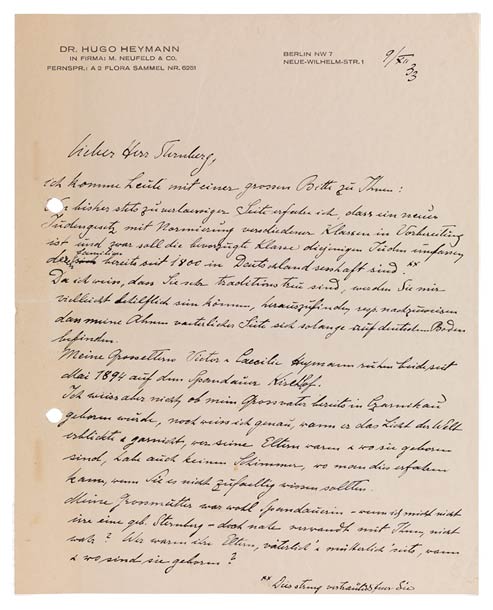 DR. HUGO HEYMANN
IN FIRMA: M. NEUFELD & CO.
FERNSPR.: A 2 FLORA SAMMEL NR. 6251
BERLIN NW 7
NEUE-WILHELM-STR. 1
9/XII 33
Lieber Herr Sternberg,
ich komme heute mit einer grossen Bitte zu Ihnen:
bisher stets zuverlaessiger Seite erfahre ich, dass ein neuer
Judengesetz mit Normierung verschiedener Klassen in Vorbereitung
ist und zwar soll die bevorzugte Klasse diejenigen Juden umfassen
deren Familien bereits seit 1800 in Deutschland sesshaft sind. **
Da ich weiss, dass Sie sehr traditionstreu sind, werden Sie mir
vielleicht behilflich sein können, herauszufinden resp. nachzuweisen
dass meine Ahnen vaeterlicher Seite sich solange auf deutschem Boden
befinden.
Meine Grosseltern Victor & Caecilie Heymann ruhen beide seit
Mai 1894 auf dem Spandauer Kirchhof.
Ich weiss aber nicht, ob mein Grossvater bereits in Czarnikau
geboren wurde, noch weiss ich genau, wann er das Licht der Welt
erblickte & garnicht, wer seine Eltern waren & wo sie geboren
sind, habe auch keinen Schimmer, wo man dies erfahren
kann, wenn Sie es nicht zufaellig wissen sollten.
Meine Grossmutter war wohl Spandauerin – wenn ich mich nicht
irre eine geb. Sternberg – doch nahe verwandt mit Ihnen, nicht
wahr? Wer waren ihre Eltern, väterlich & mütterlich seits, wann
& wo sind sie geboren?
** Dies streng vertraulich fuer Sie